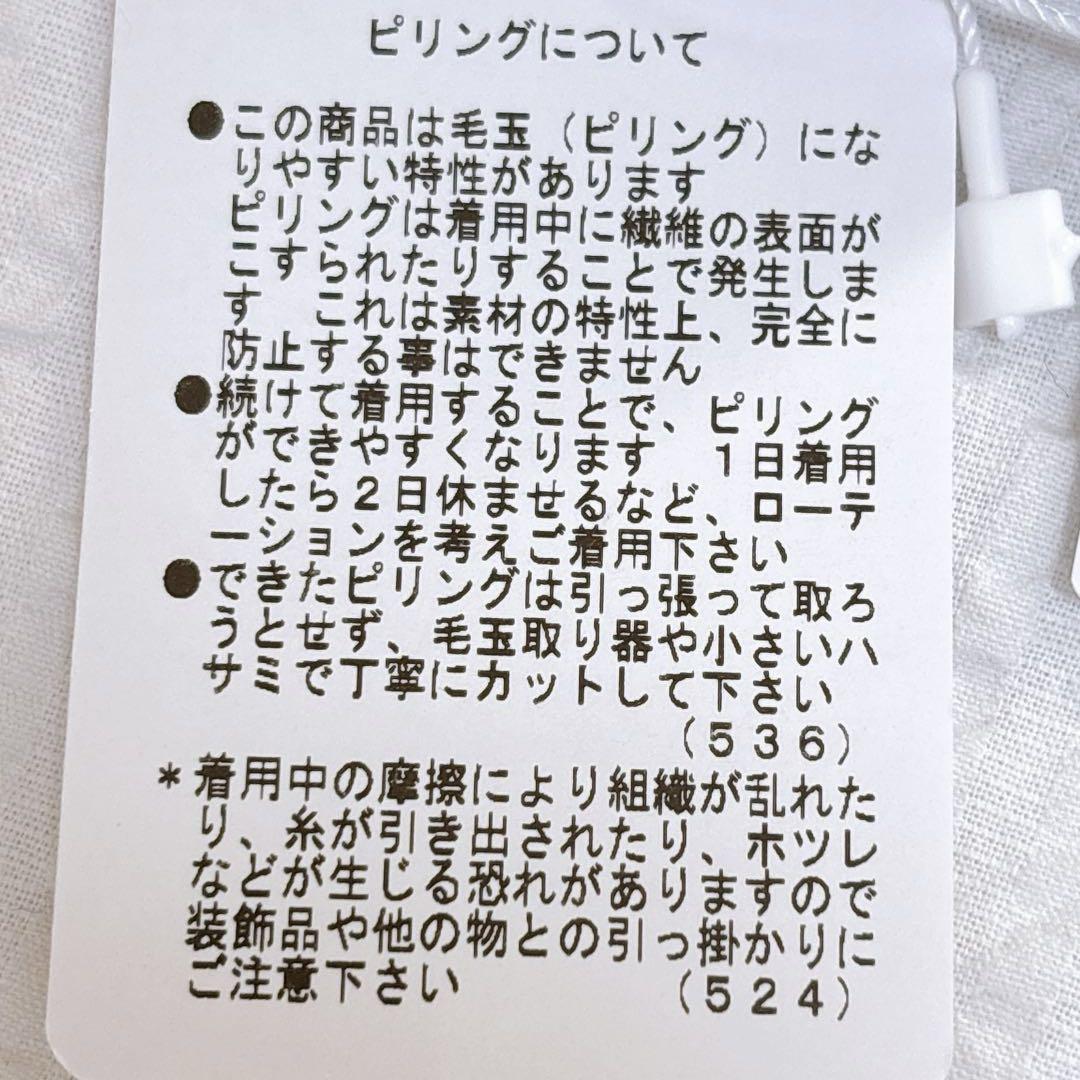 ピリングについて
●この商品は毛玉（ピリング）にな
りやすい特性があります
ピリングは着用中に繊維の表面が
こすられたりすることで発生しま
す　これは素材の特性上、完全に
防止する事はできません
●続けて着用することで、ピリング
ができやすくなります　1日着用
したら2日休ませるなど、ローテ
ーションを考えご着用下さい
●できたピリングは引っ張って取ろ
うとせず、毛玉取り器や小さいハ
サミで丁寧にカットして下さい
（536）
*着用中の摩擦により組織が乱れた
り、糸が引き出されたり、ホツレ
などが生じる恐れがありますので
装飾品や他の物との引っ掛かりに
ご注意下さい　（524）